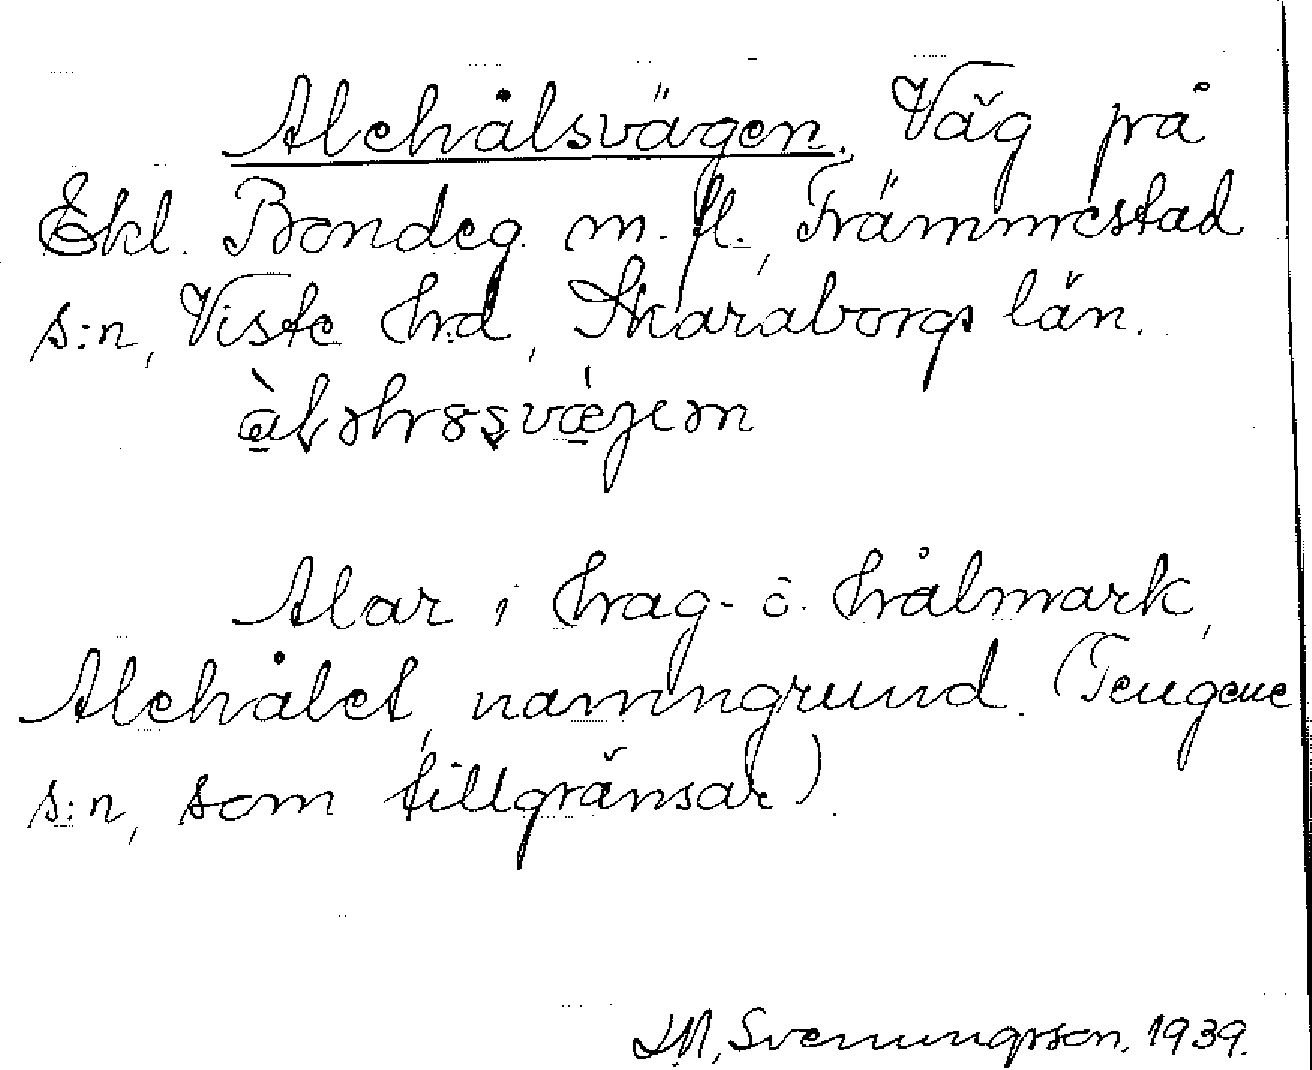 Alehålsvägen. Väg på
Ekl. Bondeg. m. fl., Främmestad
s:n, Viste hd, Skaraborgs län.
Alar i hag- o. hålmark,
Alehålet, namngrund. (Tengene
s:n, som tillgränsar).
Svenungsson. 1939.